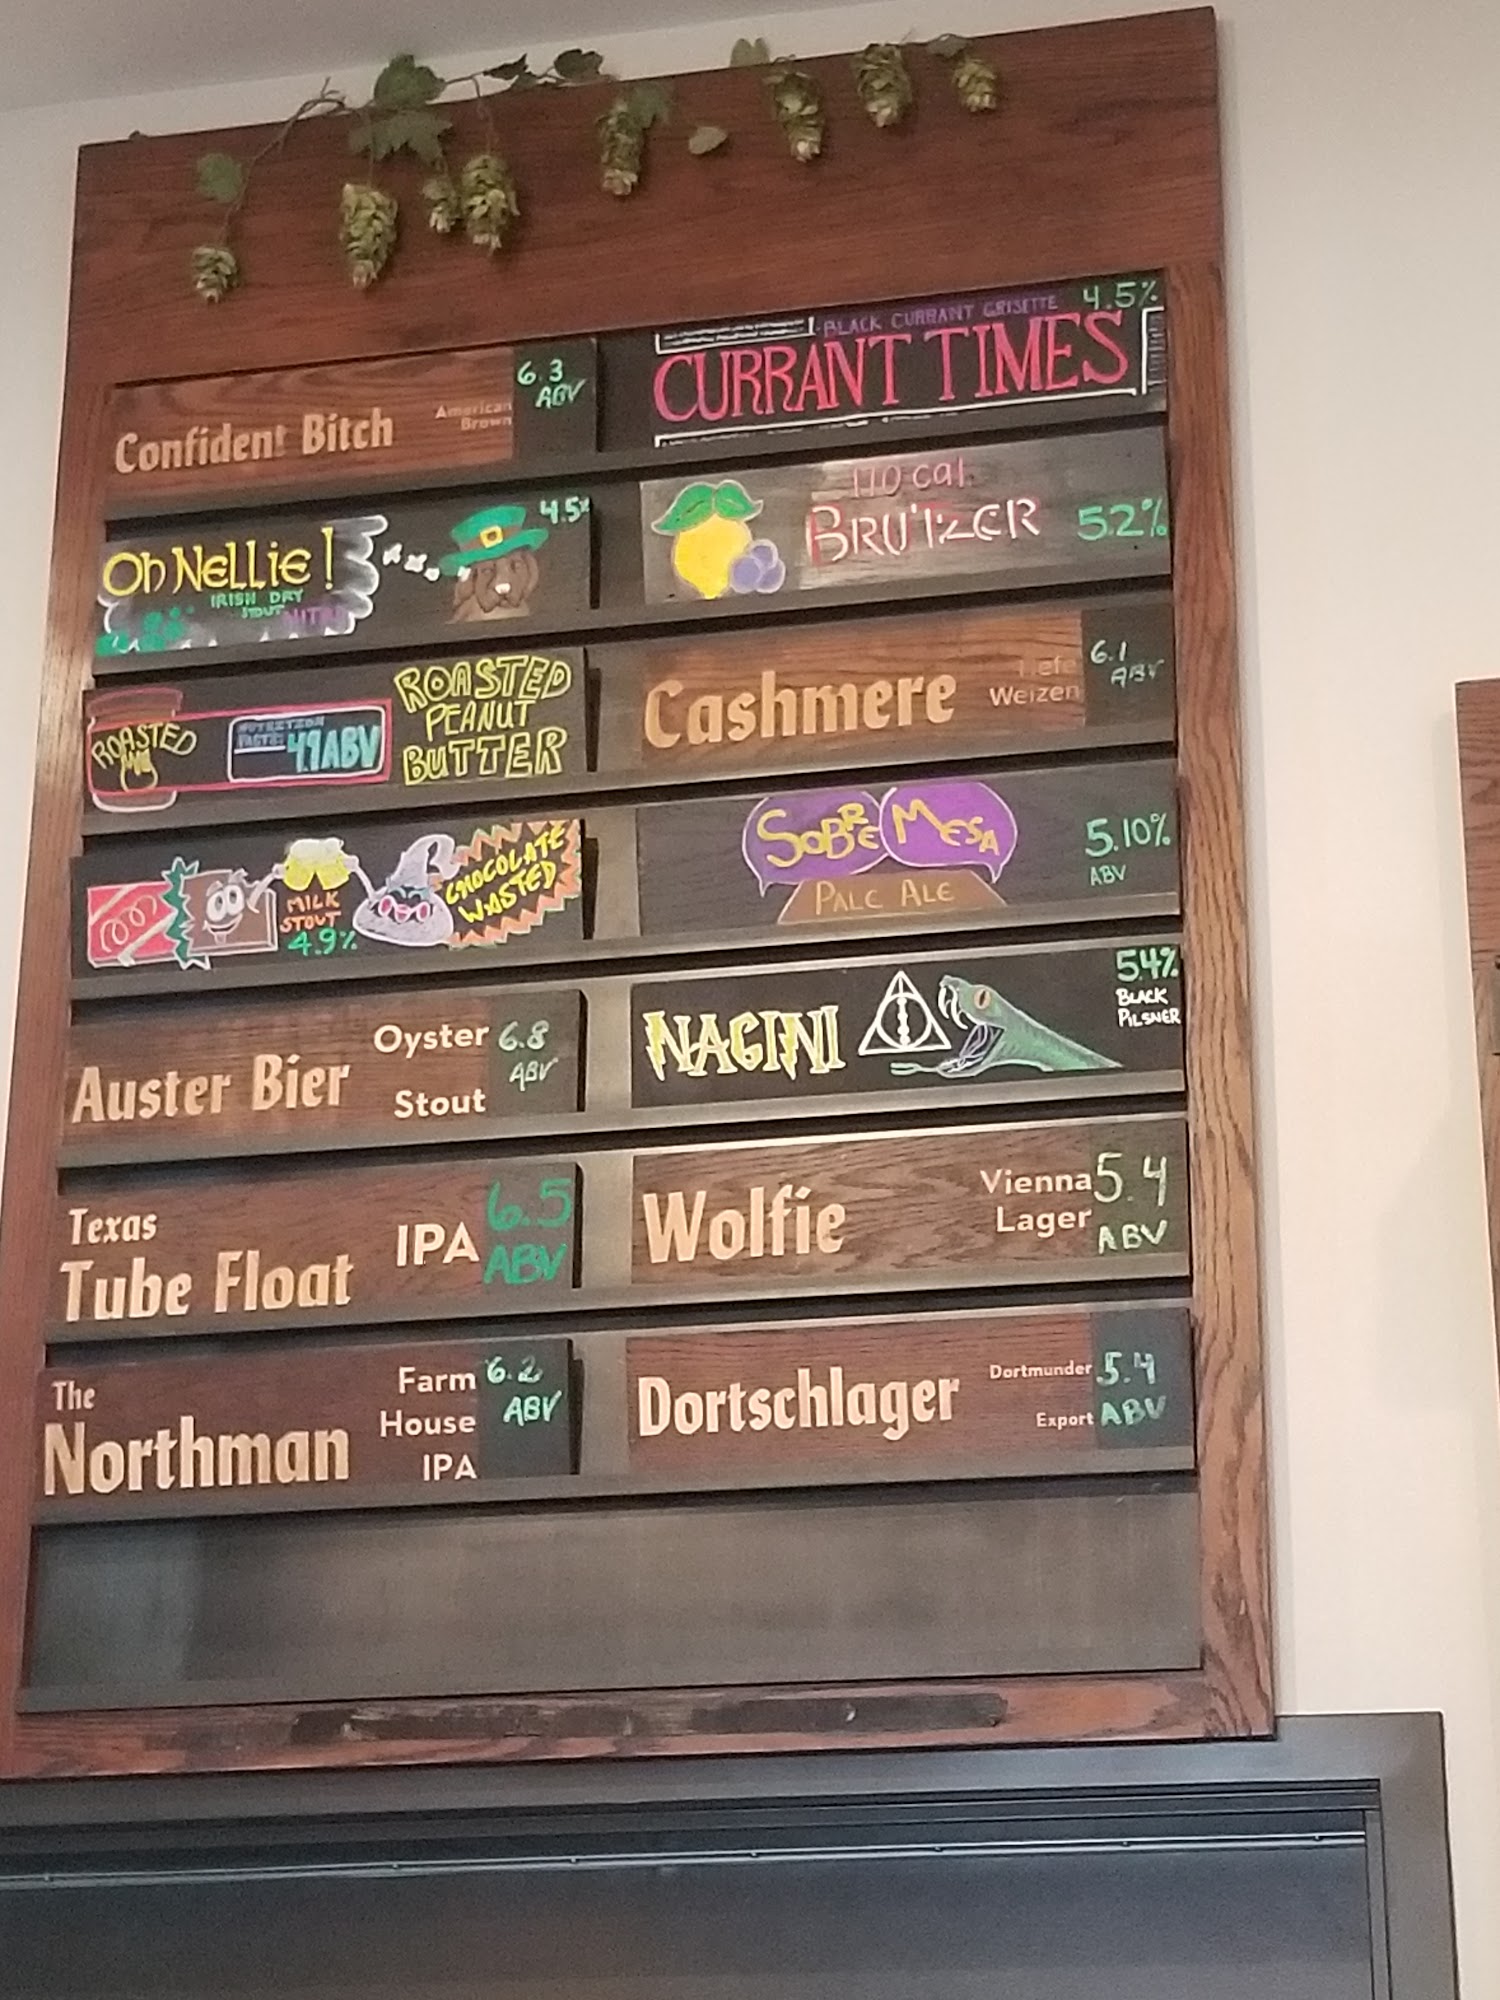 Confident Bitch
American
Brown
6.3
ABV
Oh NELLIE!
IRISH DRY
STOUT NITRO
4.5%
ROASTED
NUTRITION
FACTS:
4.9ABV
ROASTED
PEANUT
BUTTER
MILK
STOUT
4.9%
CHOCOLATE
WASTED
Auster Bier
Oyster
Stout
6.8
ABV
Texas
Tube Float
IPA
6.5
ABV
The
Northman
Farm
House
IPA
6.2
ABV
BLACK CURRANT GRISETTE 4.5%
CURRANT TIMES
110 cal.
BRUTZER
5.2%
Cashmere
Hefe
Weizen
6.1
ABV
SOBRE MESA
PALE ALE
5.10%
ABV
NAGINI
5.4%
BLACK
PILSNER
Wolfie
Vienna
Lager
5.4
ABV
Dortschlager
Dortmunder
Export
5.4
ABV